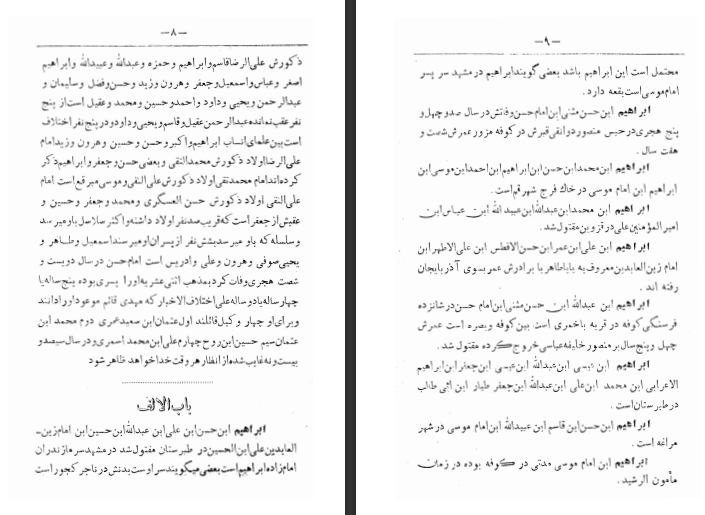 —۸—
ذکورش علی الرضا قاسم و ابراهیم و حمزه و عبدالله و عبیدالله و ابراهیم
اصغر و عباس و اسمعیل و جعفر و هرون و زید و حسن و فضل و سلیمان و
عبدالرحمن و یحیی و داود و احمد و حسین و محمد و عقیل است از پنج
نفر عقب نمانده عبدالرحمن عقیل و قاسم و یحیی و داود و در پنج نفر اختلاف
است بین علمای انساب ابراهیم و اکبر و حسن و حسین و هرون و زید امام
علی الرضا اولاد ذکورش محمد التقی و بعضی حسن و جعفر و ابراهیم ذکر
کرده اند امام محمد تقی اولاد ذکورش علی النقی و موسی مبرقع است امام
علی النقی اولاد ذکورش حسن العسکری و محمد و جعفر و حسین و
عقبش از جعفر است که قریب صد نفر اولاد داشته و اکثر سلاسل باو میرسد
و سلسله که باو میرسد بشش نفر از پسران او میرسند اسمعیل و طاهر و
یحیی صوفی و هرون و علی و ادریس است امام حسن در سال دویست و
شصت هجری وفات کرد بمذهب اثنی عشریه او را پسری بوده پنج ساله یا
چهار ساله یا دو ساله علی اختلاف الاخبار که مهدی قائم موعود او را دانند
و برای او چهار وکیل قائلند اول عثمان ابن سعید عمری دوم محمد ابن
عثمان سیم حسین ابن روح چهارم علی ابن محمد اسمری و در سال سیصد و
بیست و نه غایب شده از انظار هر وقت خدا خواهد ظاهر شود
باب الالف
ابراهیم ابن حسن ابن علی ابن عبدالله ابن حسین ابن امام زین‌ـ
العابدین علی ابن الحسین در طبرستان مقتول شد در مشهد سر مازندران
امام زاده ابراهیم است بعضی میگویند سر اوست بدنش در ناجر کجور است
—۹—
محتمل است این ابراهیم باشد بعضی گویند ابراهیم در مشهد سر پسر
امام موسی است بقعه دارد .
ابراهیم ابن حسن مثنی ابن امام حسن وفاتش در سال صد و چهل و
پنج هجری در حبس منصور دوانقی قبرش در کوفه مزور عمرش شصت و
هفت سال .
ابراهیم ابن محمد ابن حسن ابن ابراهیم ابن احمد ابن موسی ابن
ابراهیم ابن امام موسی در خاك فرج شهر قم است .
ابراهیم ابن محمد ابن عبدالله ابن عبید الله ابن عباس ابن
امیر المؤمنین علی در قزوین مقتول شد .
ابراهیم ابن علی ابن عمر ابن حسن الافطس ابن علی الاطهر ابن
امام زین العابدین معروف به باباطاهر با برادرش عمر بسوی آذربایجان
رفته اند .
ابراهیم ابن عبدالله ابن حسن مثنی ابن امام حسن در شانزده
فرسنگی کوفه در قریه باخمری است بین کوفه و بصره است عمرش
چهل و پنج سال بر منصور خلیفه عباسی خروج کرده مقتول شد .
ابراهیم ابن عیسی ابن عبدالله ابن عیسی ابن جعفر ابن ابراهیم
الاعرابی ابن محمد ابن علی ابن عبدالله ابن جعفر طیار ابن ابی طالب
در طبرستان است .
ابراهیم ابن حسن ابن قاسم ابن عبیدالله ابن امام موسی در شهر
مراغه است .
ابراهیم ابن امام موسی مدتی در کوفه بوده در زمان
مأمون الرشید .